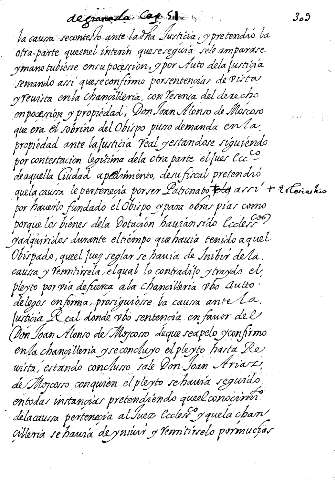 de granada Cap. 51 303
la causa se contesto ante la Rl Justicia, y pretendio la
otra parte que en el interin que se seguia se lo amparase
y manotubiese en su pocession, y por Auto de la Justicia
se mando assi que se confirmo por sentencias de vista
y Revista en la Chancilleria, con reserva del derecho
em pocession y propiedad, Don Juan Alonso de Moscoso
que era el sobrino del Obispo puso demanda en la
propiedad ante la Justicia Real y estandose siguiendo
por contestacion legitima de la otra parte el Juez Ecco
de aquella Ciudad a pedimento, de su fiscal pretendio
que la causa le pertenecia por ser Patronato assi + Eclesiastico
por haverlo fundado el Obispo y para obras pias como
porque los bienes de la Dotacion havian sido Ecclesos
y adquiridos durante el tiempo que havia tenido aquel
Obispado, que el Juez seglar se havia de Inibir de la
causa, y Remitirsela, el qual lo contradijo y traydo el
pleyto por via de fuerza a la chancilleria ubo Auto
de legos en forma, prosiguiosse la causa ante la
Justicia Real donde ubo sentencia en favor del
Don Joan Alonso de Moscoso de que se apelo y confirmo
en la chancilleria y se concluyo el pleyto hasta Re
vista, estando concluso sale Don Joan Arias,
de Moscoso con quien el pleyto se havia seguido
en todas instancias pretendiendo que el conocimto
de la causa pertenecia al Juez Ecclesco y que la chan
cilleria se havia de ynivir y Remitirselo por muchas